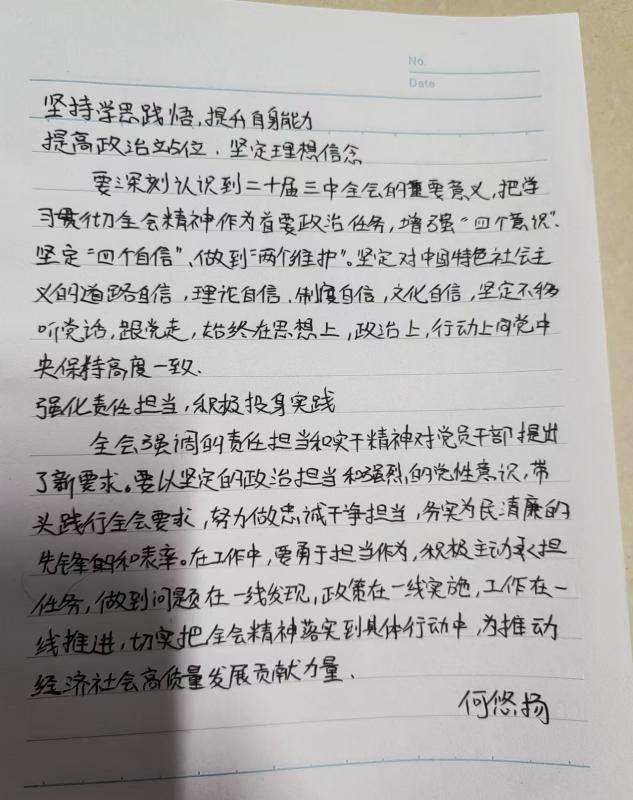 No.
Date
坚持学思践悟,提升自身能力
提高政治站位、坚定理想信念
要深刻认识到二十届三中全会的重要意义,把学
习贯彻全会精神作为首要政治任务,增强“四个意识”、
坚定“四个自信”、做到“两个维护”。坚定对中国特色社会主
义的道路自信,理论自信,制度自信,文化自信,坚定不移
听党话,跟党走,始终在思想上,政治上,行动上同党中
央保持高度一致.
强化责任担当,积极投身实践
全会强调的责任担当和实干精神对党员干部提出
了新要求。要以坚定的政治担当和强烈的党性意识,带
头践行全会要求,努力做忠诚干净担当,务实为民清廉的
先锋和表率。在工作中,要勇于担当作为,积极主动承担
任务,做到问题在一线发现,政策在一线实施,工作在一
线推进,切实把全会精神落实到具体行动中,为推动
经济社会高质量发展贡献力量.
何悠扬